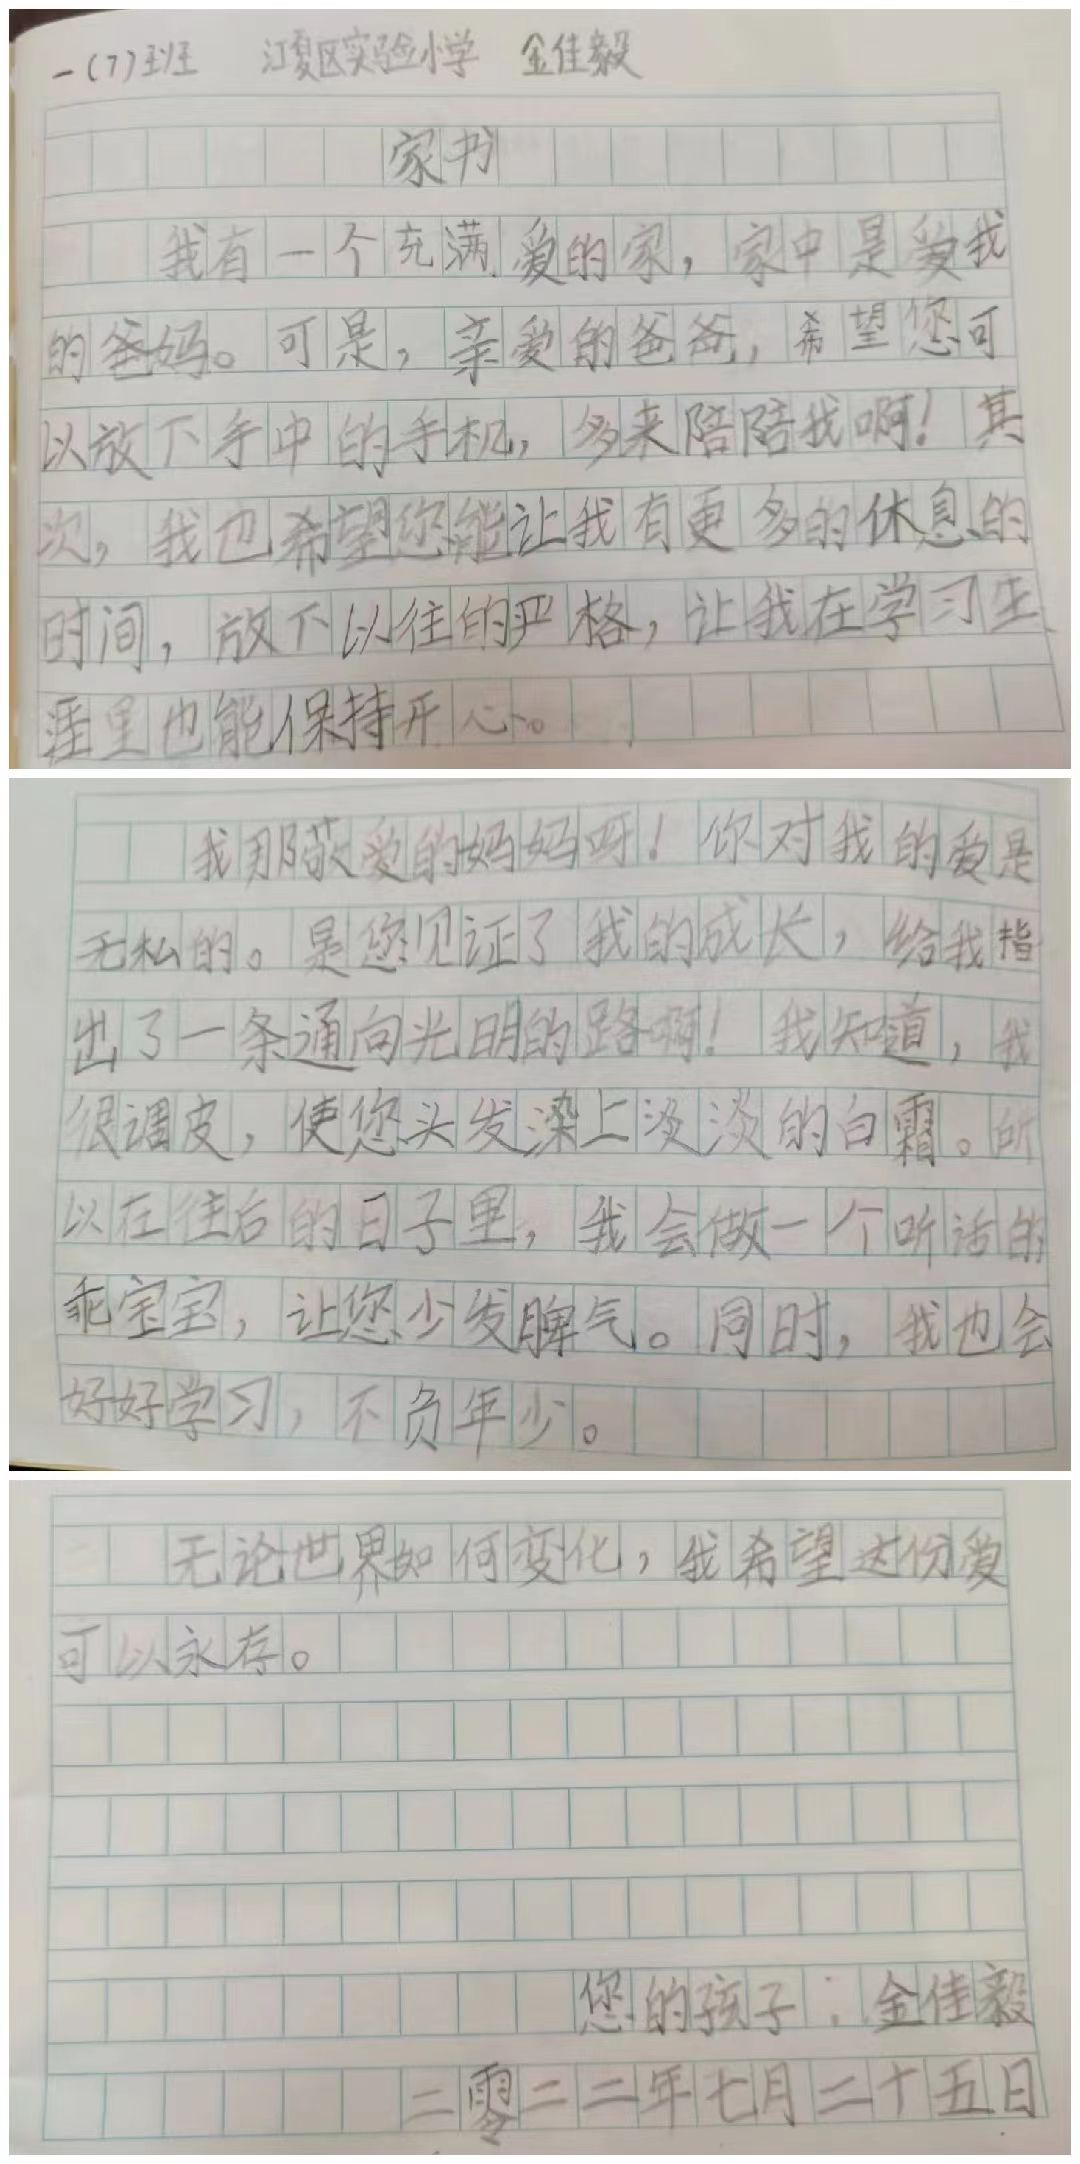 一(7)班 江夏区实验小学 金佳毅
家书
我有一个充满爱的家，家中是爱我
的爸妈。可是，亲爱的爸爸，希望您可
以放下手中的手机，多来陪陪我啊！其
次，我也希望您能让我有更多的休息的
时间，放下以往的严格，让我在学习生
涯里也能保持开心。
我那敬爱的妈妈呀！你对我的爱是
无私的。是您见证了我的成长，给我指
出了一条通向光明的路啊！我知道，我
很调皮，使您头发染上淡淡的白霜。所
以在往后的日子里，我会做一个听话的
乖宝宝，让您少发脾气。同时，我也会
好好学习，不负年少。
无论世界如何变化，我希望这份爱
可以永存。
您的孩子：金佳毅
二零二二年七月二十五日